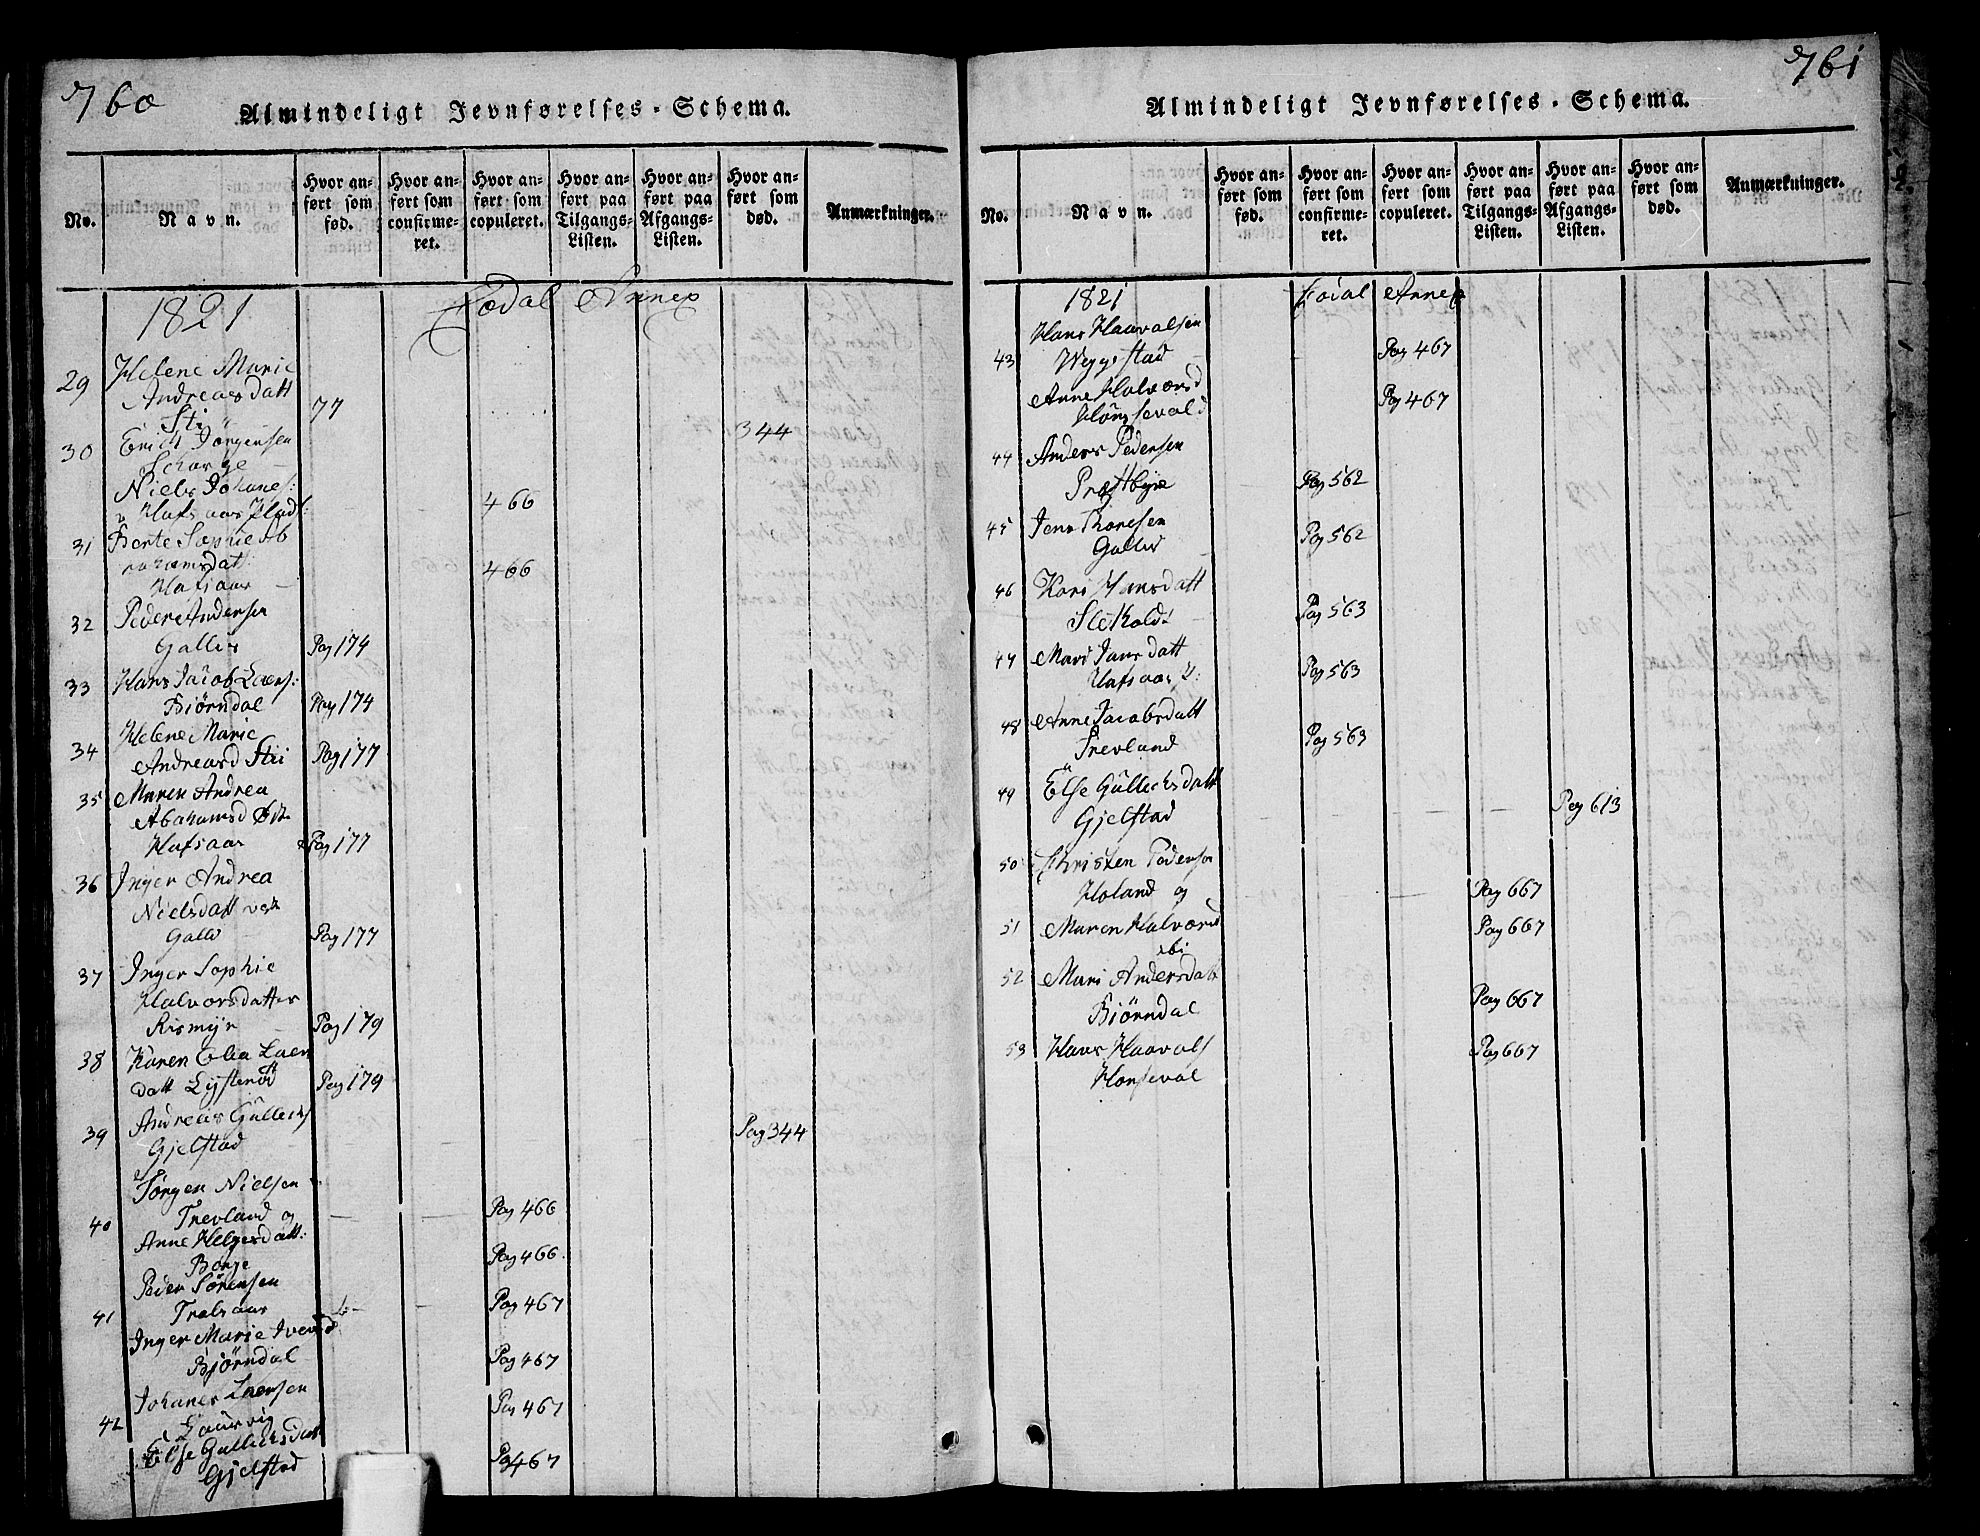 760
Almindeligt Jevnførelses-Schema.
No.
Navn.
Hvor anført som fød.
Hvor anført som confirmeret.
Hvor anført som copuleret.
Hvor anført paa Tilgangs-Listen.
Hvor anført paa Afgangs-Listen.
Hvor anført som død.
Anmærkninger.
1821 Annex
29 Helene Marie
Andreasdatt
Sti 77
30 Erich Jørgensen 344
Schorge
Niels Johanes:
Hafsaas Plads: 466
31 Berte Sophie Ab
rahamsdatt: 466
Hafsaas
32 Peder Andersen
Gallis Pag 174
33 Hans Jacob Laers:
Biørndal Pag 174
34 Helene Marie
Andreasd Stii Pag 177
35 Maren Andrea
Abahamsd
Hafsaas Pag 177
36 Inger Andrea
Nielsdatt
Galls Pag 177
37 Inger Sophie
Halvorsdatter
Rismyr Pag 179
38 Karen Elea Laers
datt Lysterød Pag 179
39 Andreas Gullechs
Gjelstad Pag 344
40 Jørgen Nielsen
Trevland og Pag 466
Anne Helgesdatt:
Børge Pag 466
41 Peder Sørensen
Tralsaas Pag 467
Inger Marie Iversd
Bjørndal Pag 467
42 Johanes Laersen
Laurvig Pag 467
Else Gullechsdatt
Gjelstad Pag 467
761
Almindeligt Jevnførelses-Schema.
No.
Navn.
Hvor anført som fød.
Hvor anført som confirmeret.
Hvor anført som copuleret.
Hvor anført paa Tilgangs-Listen.
Hvor anført paa Afgangs-Listen.
Hvor anført som død.
Anmærkninger.
1821 Annex
43 Hans Haavalsen
Weggestad Pag 467
Anne Halvorsd
Pag 467
44 Anders Pedersen
Præstbye Pag 562
45 Jens Thoresen
Galls Pag 562
46 Kari Hansdatt
Slethold Pag 563
47 Mari Jansdatt
Hafsaas Pag 563
48 Anne Jacobsdatt
Trevland Pag 563
49 Else Gullechsdatt
Gjelstad Pag 613
50 Christen Pedersen
Holand og Pag 667
51 Maren Halvorsd Pag 667
ibi
52 Mari Andersdatt
Biørndal Pag 667
53 Hans Haavals Pag 667
Honseval